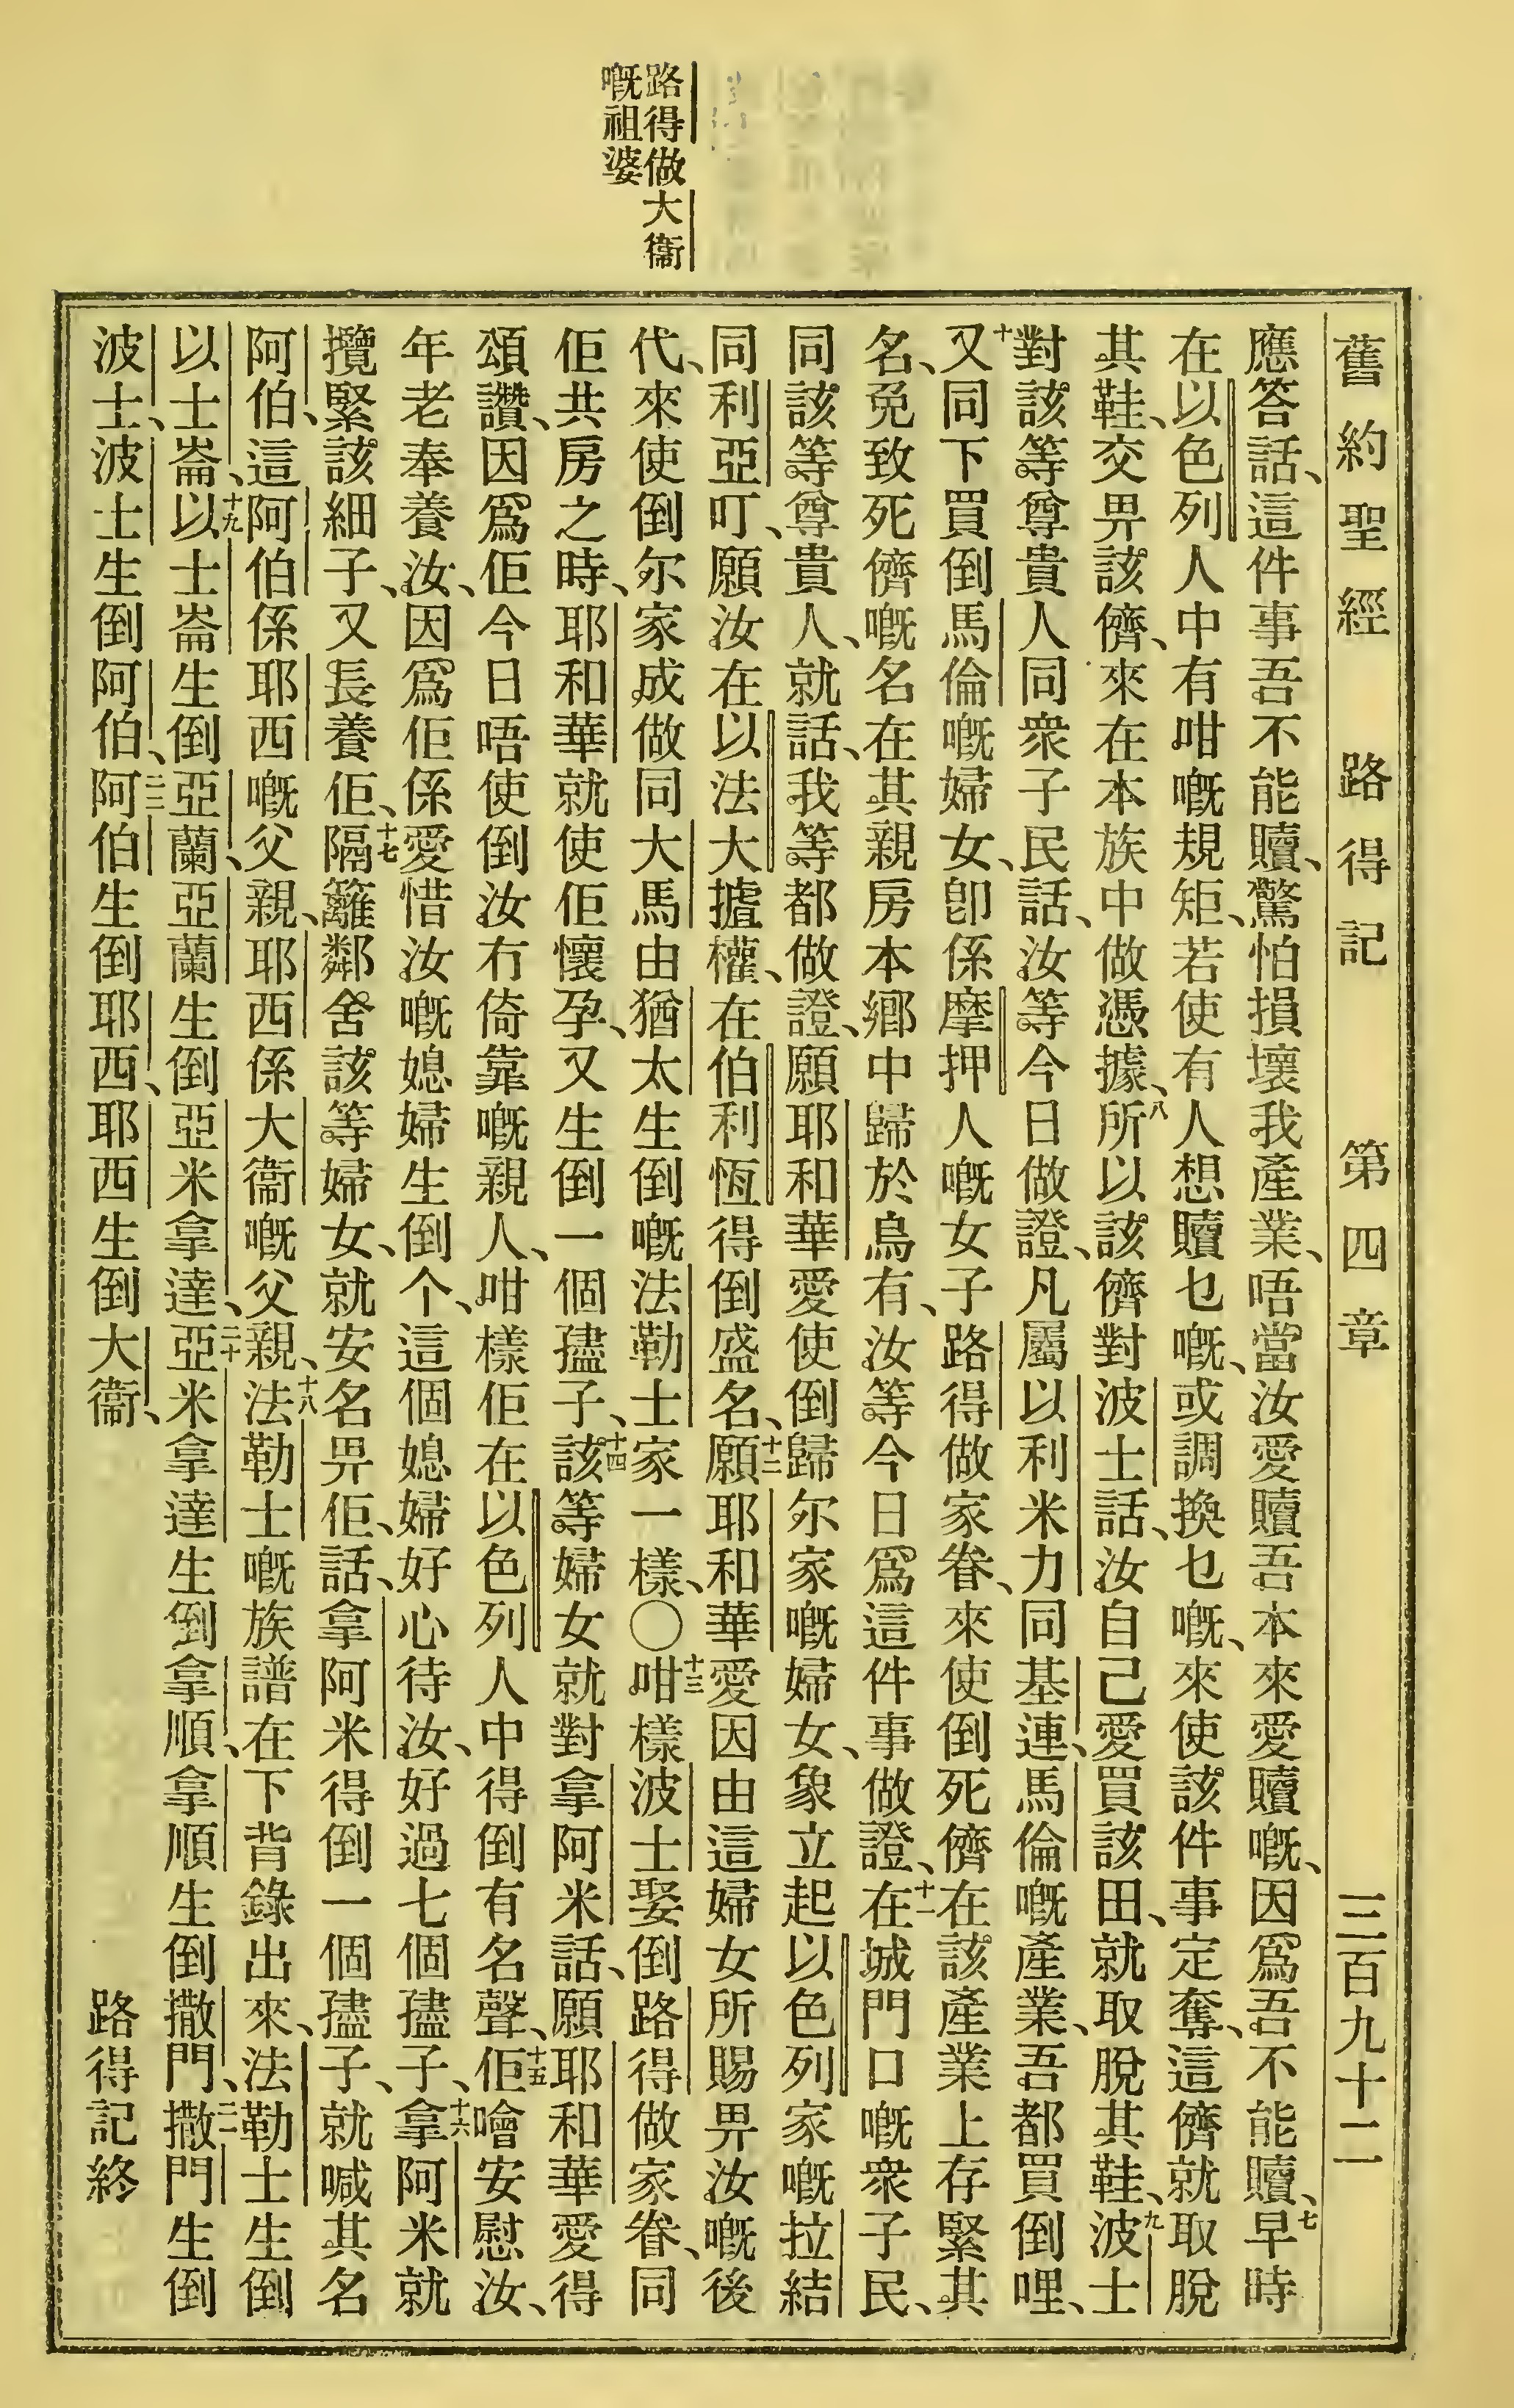 路得做大衞
嘅祖婆
舊約聖經 路得記 第四章 三百九十二
應答話、這件事吾不能贖、驚怕損壞我產業、唔當汝愛贖吾本來愛贖嘅、因爲吾不能贖、七早時
在以色列人中有咁嘅規矩、若使有人想贖乜嘅、或調換乜嘅、來使該件事定奪、這儕就取脫
其鞋、交畀該儕、來在本族中做憑據、八所以該儕對波士話、汝自己愛買該田、就取脫其鞋、九波士
對該等尊貴人同衆子民話、汝等今日做證、凡屬以利米力同基連、馬倫嘅產業、吾都買倒哩、
十又同下買倒馬倫嘅婦女、卽係摩押人嘅女子路得做家眷、來使倒死儕在該產業上存緊其
名、免致死儕嘅名在其親房本鄉中歸於烏有、汝等今日爲這件事做證、十一在城門口嘅衆子民、
同該等尊貴人、就話、我等都做證、願耶和華愛使倒歸尔家嘅婦女、象立起以色列家嘅拉結
同利亞叮、願汝在以法大㨿權、在伯利恆得倒盛名、十二願耶和華愛因由這婦女所賜畀汝嘅後
代、來使倒尔家成做同大馬由猶太生倒嘅法勒士家一樣、〇十三咁樣波士娶倒路得做家眷、同
佢共房之時、耶和華就使佢懷孕、又生倒一個孻子、十四該等婦女就對拿阿米話、願耶和華愛得
頌讚、因爲佢今日唔使倒汝冇倚靠嘅親人、咁樣佢在以色列人中得倒有名聲、十五佢噲安慰汝、
年老奉養汝、因爲佢係愛惜汝嘅媳婦生倒个、這個媳婦好心待汝、好過七個孻子、十六拿阿米就
攬緊該細子、又長養佢、十七隔籬鄰舍該等婦女、就安名畀佢、話、拿阿米得倒一個孻子、就喊其名
阿伯、這阿伯係耶西嘅父親、耶西係大衞嘅父親、十八法勒士嘅族譜在下背錄出來、法勒士生倒
以士崙、十九以士崙生倒亞蘭、亞蘭生倒亞米拿達、二十亞米拿達生倒拿順、拿順生倒撒門、二一撒門生倒
波士、波士生倒阿伯、二二阿伯生倒耶西、耶西生倒大衞、
路得記終